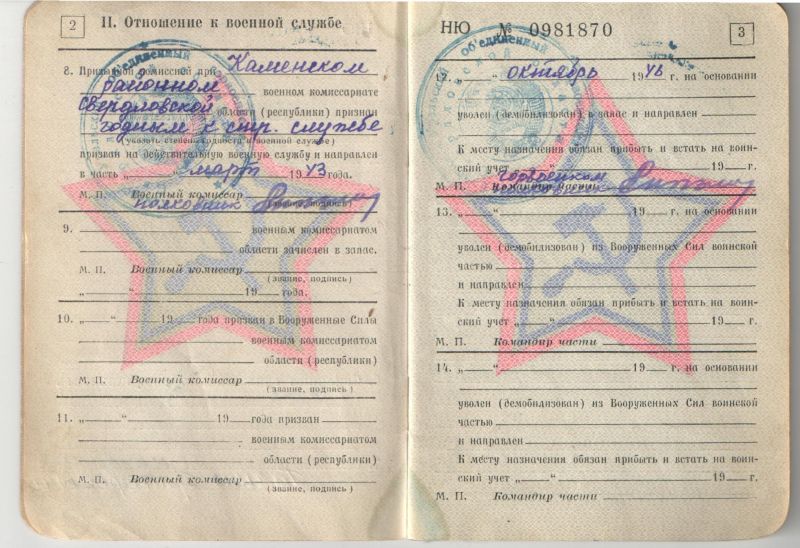 2 II. Отношение к военной службе
8. Призывной комиссией при Каменском
районном военном комиссариате
Свердловской области (республики) признан
годным к стр. службе
(указать степень годности к военной службе)
призван на действительную военную службу и направлен
в часть „ “ март 1943 года.
М. П. Военный комиссар
полковник (звание, подпись)
9. военным комиссариатом
области зачислен в запас.
М. П. Военный комиссар
(звание, подпись)
„ “ 19 года.
10. „ “ 19 года призван в Вооруженные Силы
военным комиссариатом
области (республики)
М. П. Военный комиссар
(звание, подпись)
11. „ “ 19 года призван
военным комиссариатом
области (республики)
М. П. Военный комиссар
(звание, подпись)
НЮ № 0981870 3
12. „ “ октябрь 1946 г. на основании
уволен (демобилизован) в запас и направлен
К месту назначения обязан прибыть и встать на воин-
ский учет „ “ 19 г.
М. П. Командир части
13. „ “ 19 г. на основании
уволен (демобилизован) из Вооруженных Сил воинской
частью
и направлен
К месту назначения обязан прибыть и встать на воин-
ский учет „ “ 19 г.
М. П. Командир части
14. „ “ 19 г. на основании
уволен (демобилизован) из Вооруженных Сил воинской
частью
и направлен
К месту назначения обязан прибыть и встать на воин-
ский учет „ “ 19 г.
М. П. Командир части